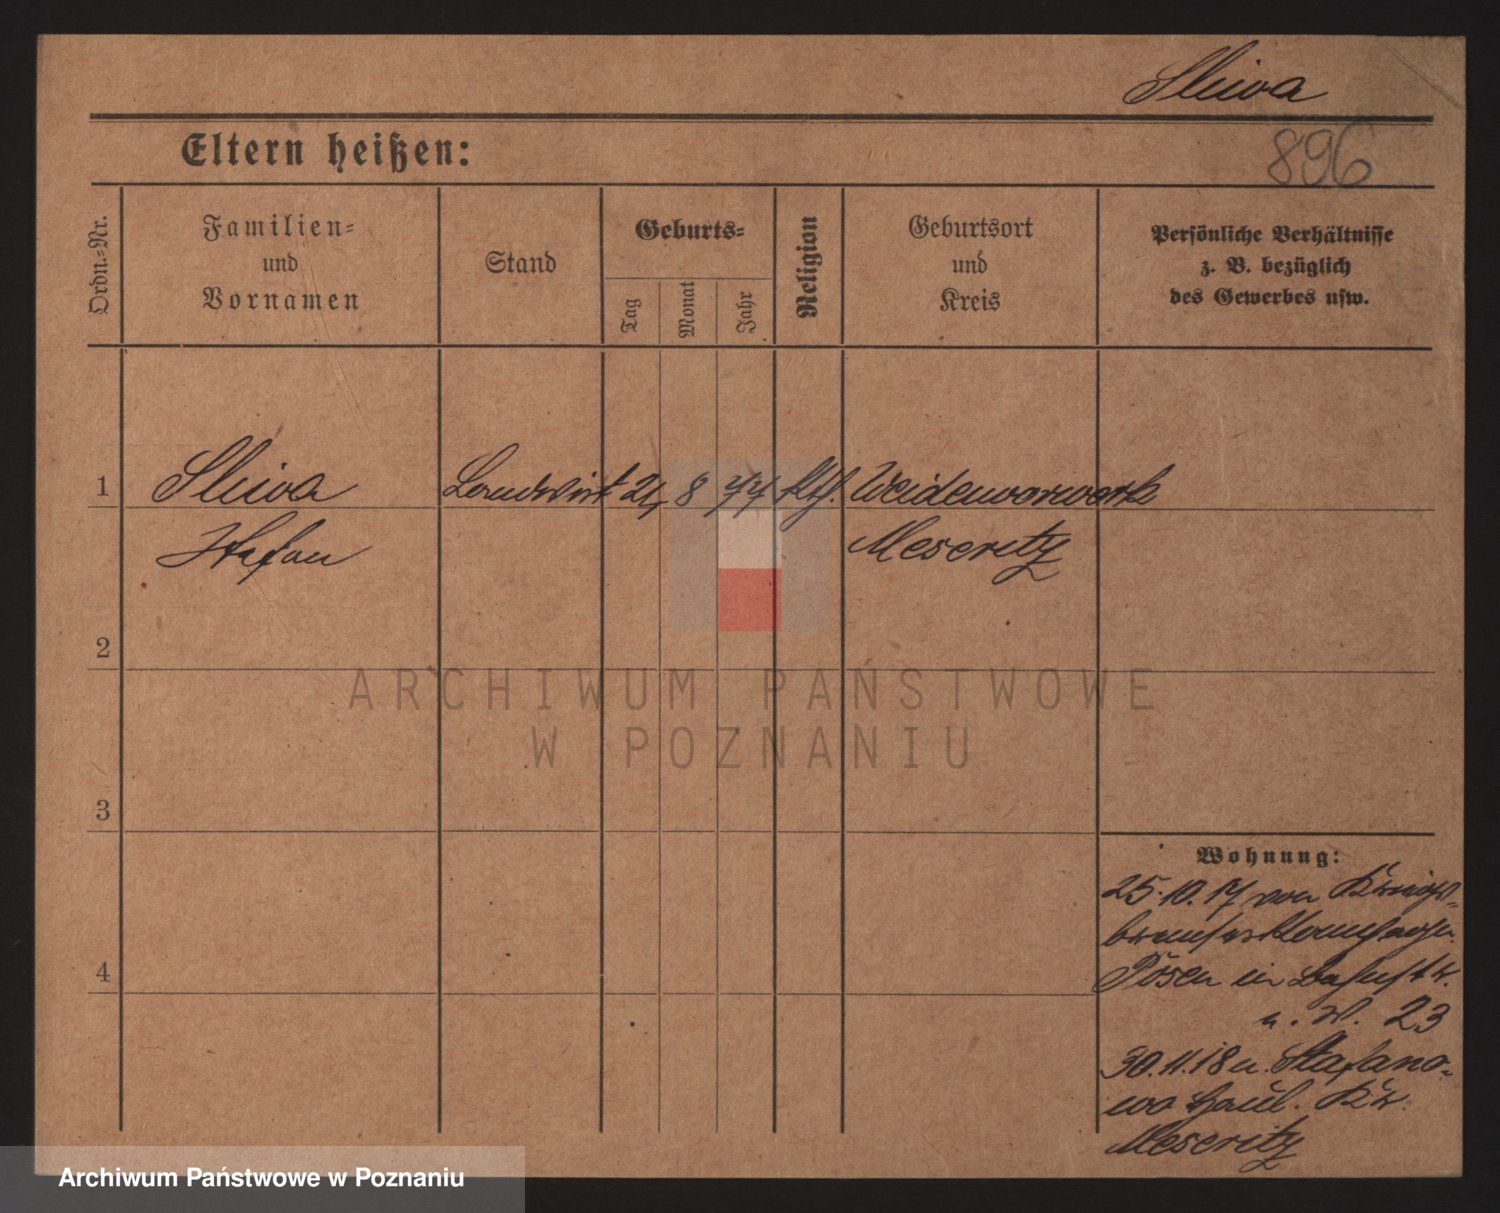 Sliwa
896
Eltern heißen:
Ordn.-Nr.
Familien-
und
Vornamen
Stand
Geburts-
Tag
Monat
Jahr
Religion
Geburtsort
und
Kreis
Persönliche Verhältnisse
z. B. bezüglich
des Gewerbes usw.
1 Sliwa Landwirt 24 8 77 Kth. Weidenvorwerk
Stefan Meseritz
2
3
4
Wohnung:
25.10.17 von
Posen in
n. W. 23
30.11.18 n. Stefano-
wo Haul. Kr.
Meseritz
ARCHIWUM PAŃSTWOWE
W POZNANIU
Archiwum Państwowe w Poznaniu